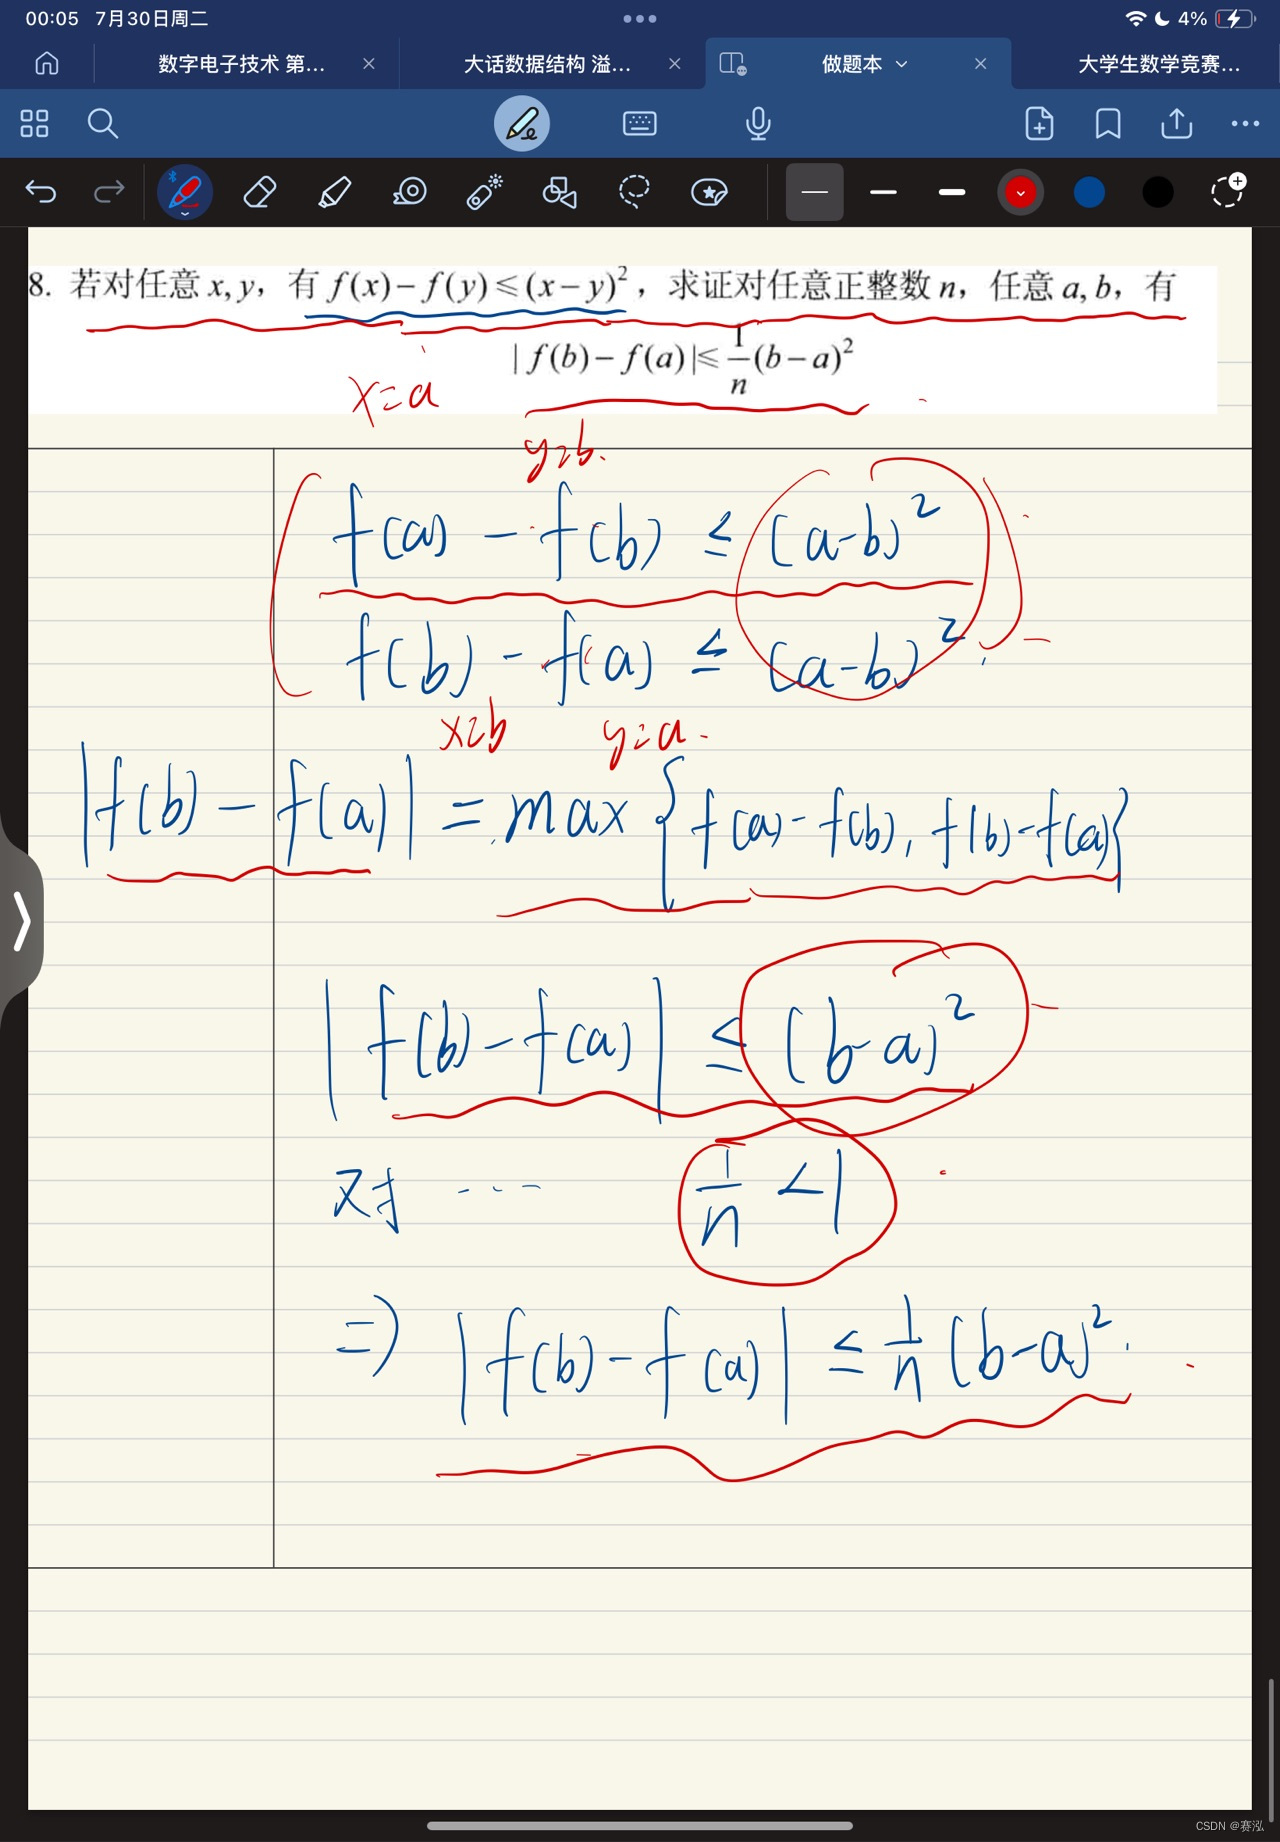 00:05 7月30日周二
4%
数字电子技术 第...
大话数据结构 溢...
做题本
大学生数学竞赛...
8. 若对任意 x, y，有 f(x)−f(y)⩽(x−y)²，求证对任意正整数 n，任意 a, b，有
|f(b)−f(a)|⩽1/n(b−a)²
x=a
y=b.
f(a) - f(b) ≤ (a-b)²
f(b) - f(a) ≤ (a-b)²
x=b y=a
|f(b) - f(a)| = max {f(a)-f(b), f(b)-f(a)}
|f(b)-f(a)| ≤ (b-a)²
又对 ... 1/n <1
=> |f(b)-f(a)| ≤ 1/n (b-a)².
CSDN @赛泓